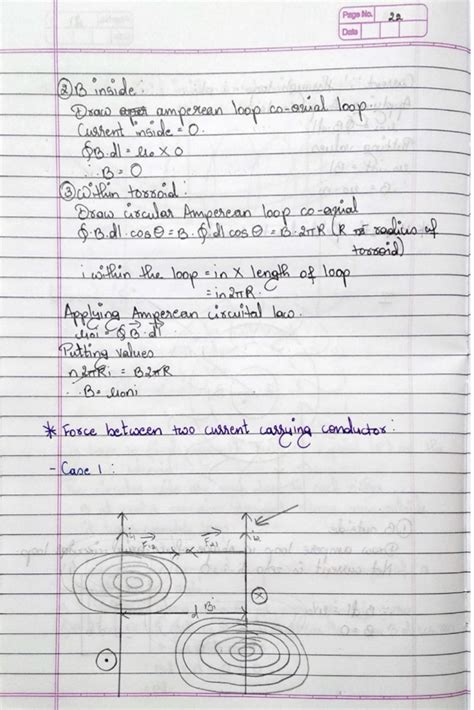 Page No. 22
Date
② B inside :
Draw amperean loop co-axial loop.
Current inside = 0.
∮B.dl = μo × 0
∴ B = 0
③ within torroid :
Draw circular Amperean loop co-axial
∮B.dl.cosθ = B.∮dl cosθ = B.2πR (R radius of
torroid)
i within the loop = in × length of loop
= in2πR.
Applying Amperean circuital law.
μoi = ∮B.dl
Putting values
n2πRi = B2πR
∴ B = μoni
* Force between two current carrying conductor :
- Case 1 :
i1 F12 F21 i2
d B